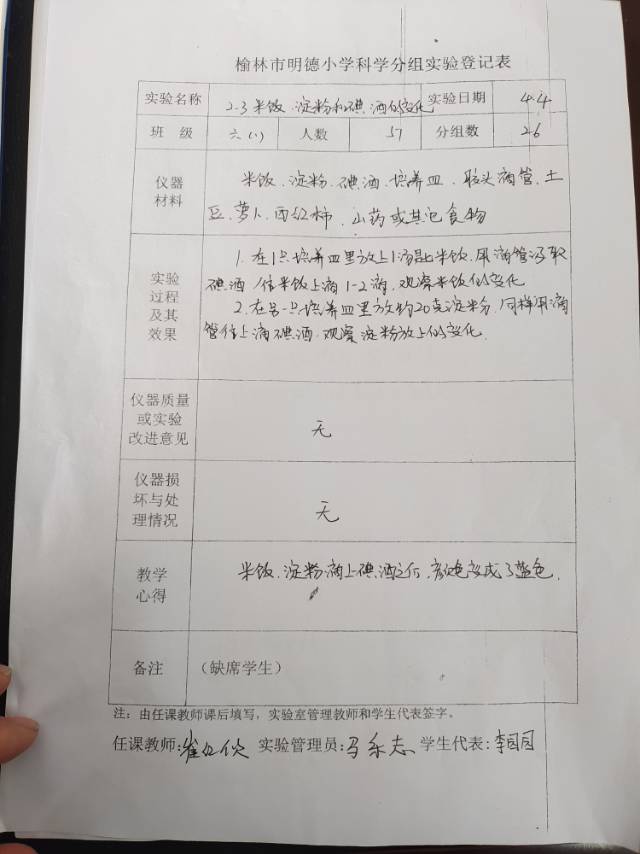 榆林市明德小学科学分组实验登记表
实验名称 2-3米饭、淀粉和碘酒的变化 实验日期 4.4
班级 六(1) 人数 57 分组数 26
仪器材料 米饭、淀粉、碘酒、培养皿、胶头滴管、土
豆、萝卜、西红柿、山药或其它食物
实验过程及其效果 1. 在1只培养皿里放上1汤匙米饭,用滴管汲取
碘酒,往米饭上滴1-2滴,观察米饭的变化
2. 在另一只培养皿里放约20克淀粉,同样用滴
管往上滴碘酒,观察淀粉放上的变化.
仪器质量或实验改进意见 无
仪器损坏与处理情况 无
教学心得 米饭、淀粉滴上碘酒之后,颜色变成了蓝色.
备注 (缺席学生)
注:由任课教师课后填写,实验室管理教师和学生代表签字。
任课教师: 实验管理员:马东志 学生代表: